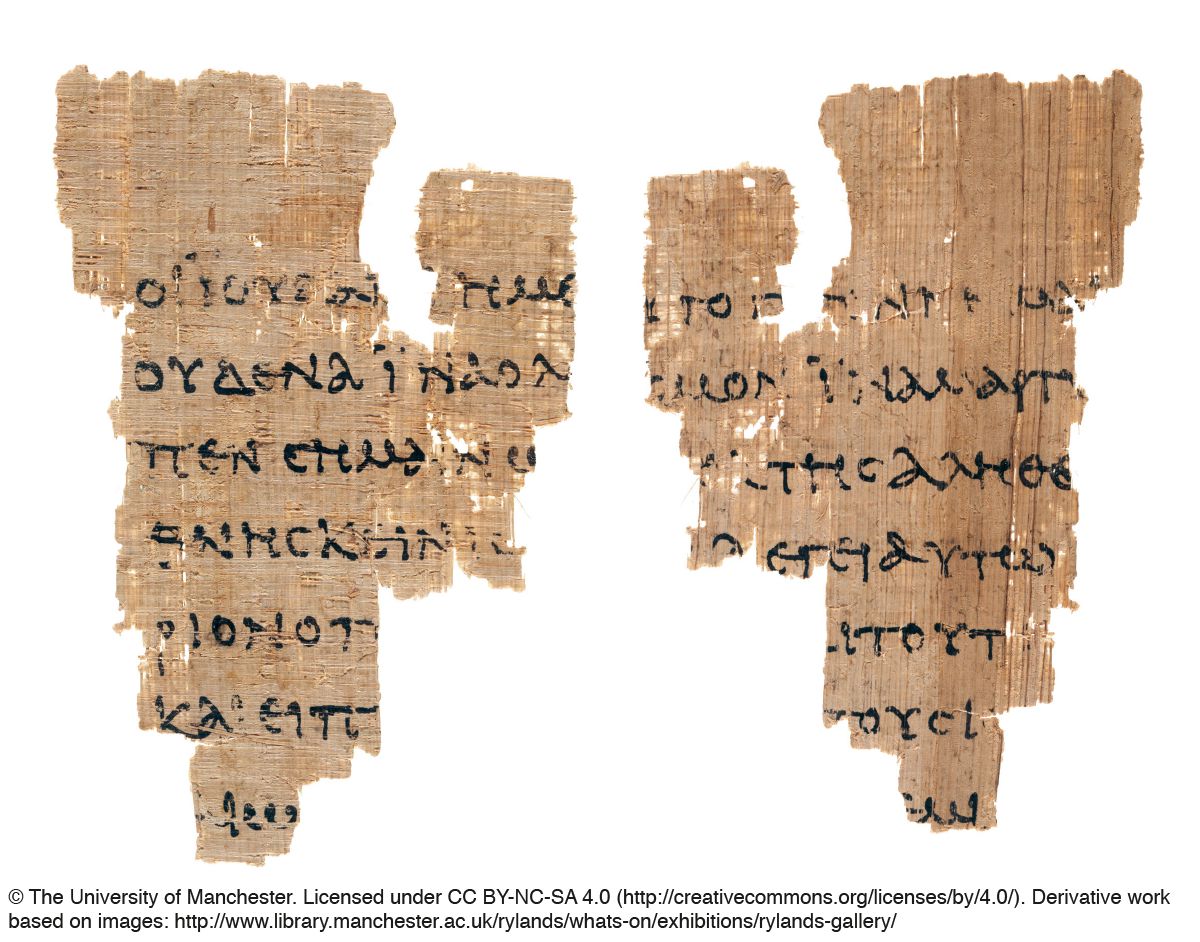 ΟΙ ΪΟΥΔΑΙ ΗΜΕ
ΟΥΔΕΝΑ ΪΝΑ Ο Λ
ΠΕΝ ΣΗΜΑΙΝΩ
ΘΝΗΣΚΕΙΝ ΙΣ
ΡΙΟΝ Ο Π
ΚΑΙ ΕΙΠ
ΜΙΩ
ΥΤΟ Γ ΝΝΗΜΑΙ
ΣΜΟΝ ΪΝΑ ΜΑΡΤΥ
ΕΚ ΤΗΣ ΑΛΗΘΕ
ΛΕΓΕΙ ΑΥΤΩ
ΑΙ ΤΟΥΤ
ΤΟΥΣ Ι
ΕΜΙ
© The University of Manchester. Licensed under CC BY-NC-SA 4.0 (http://creativecommons.org/licenses/by/4.0/). Derivative work
based on images: http://www.library.manchester.ac.uk/rylands/whats-on/exhibitions/rylands-gallery/